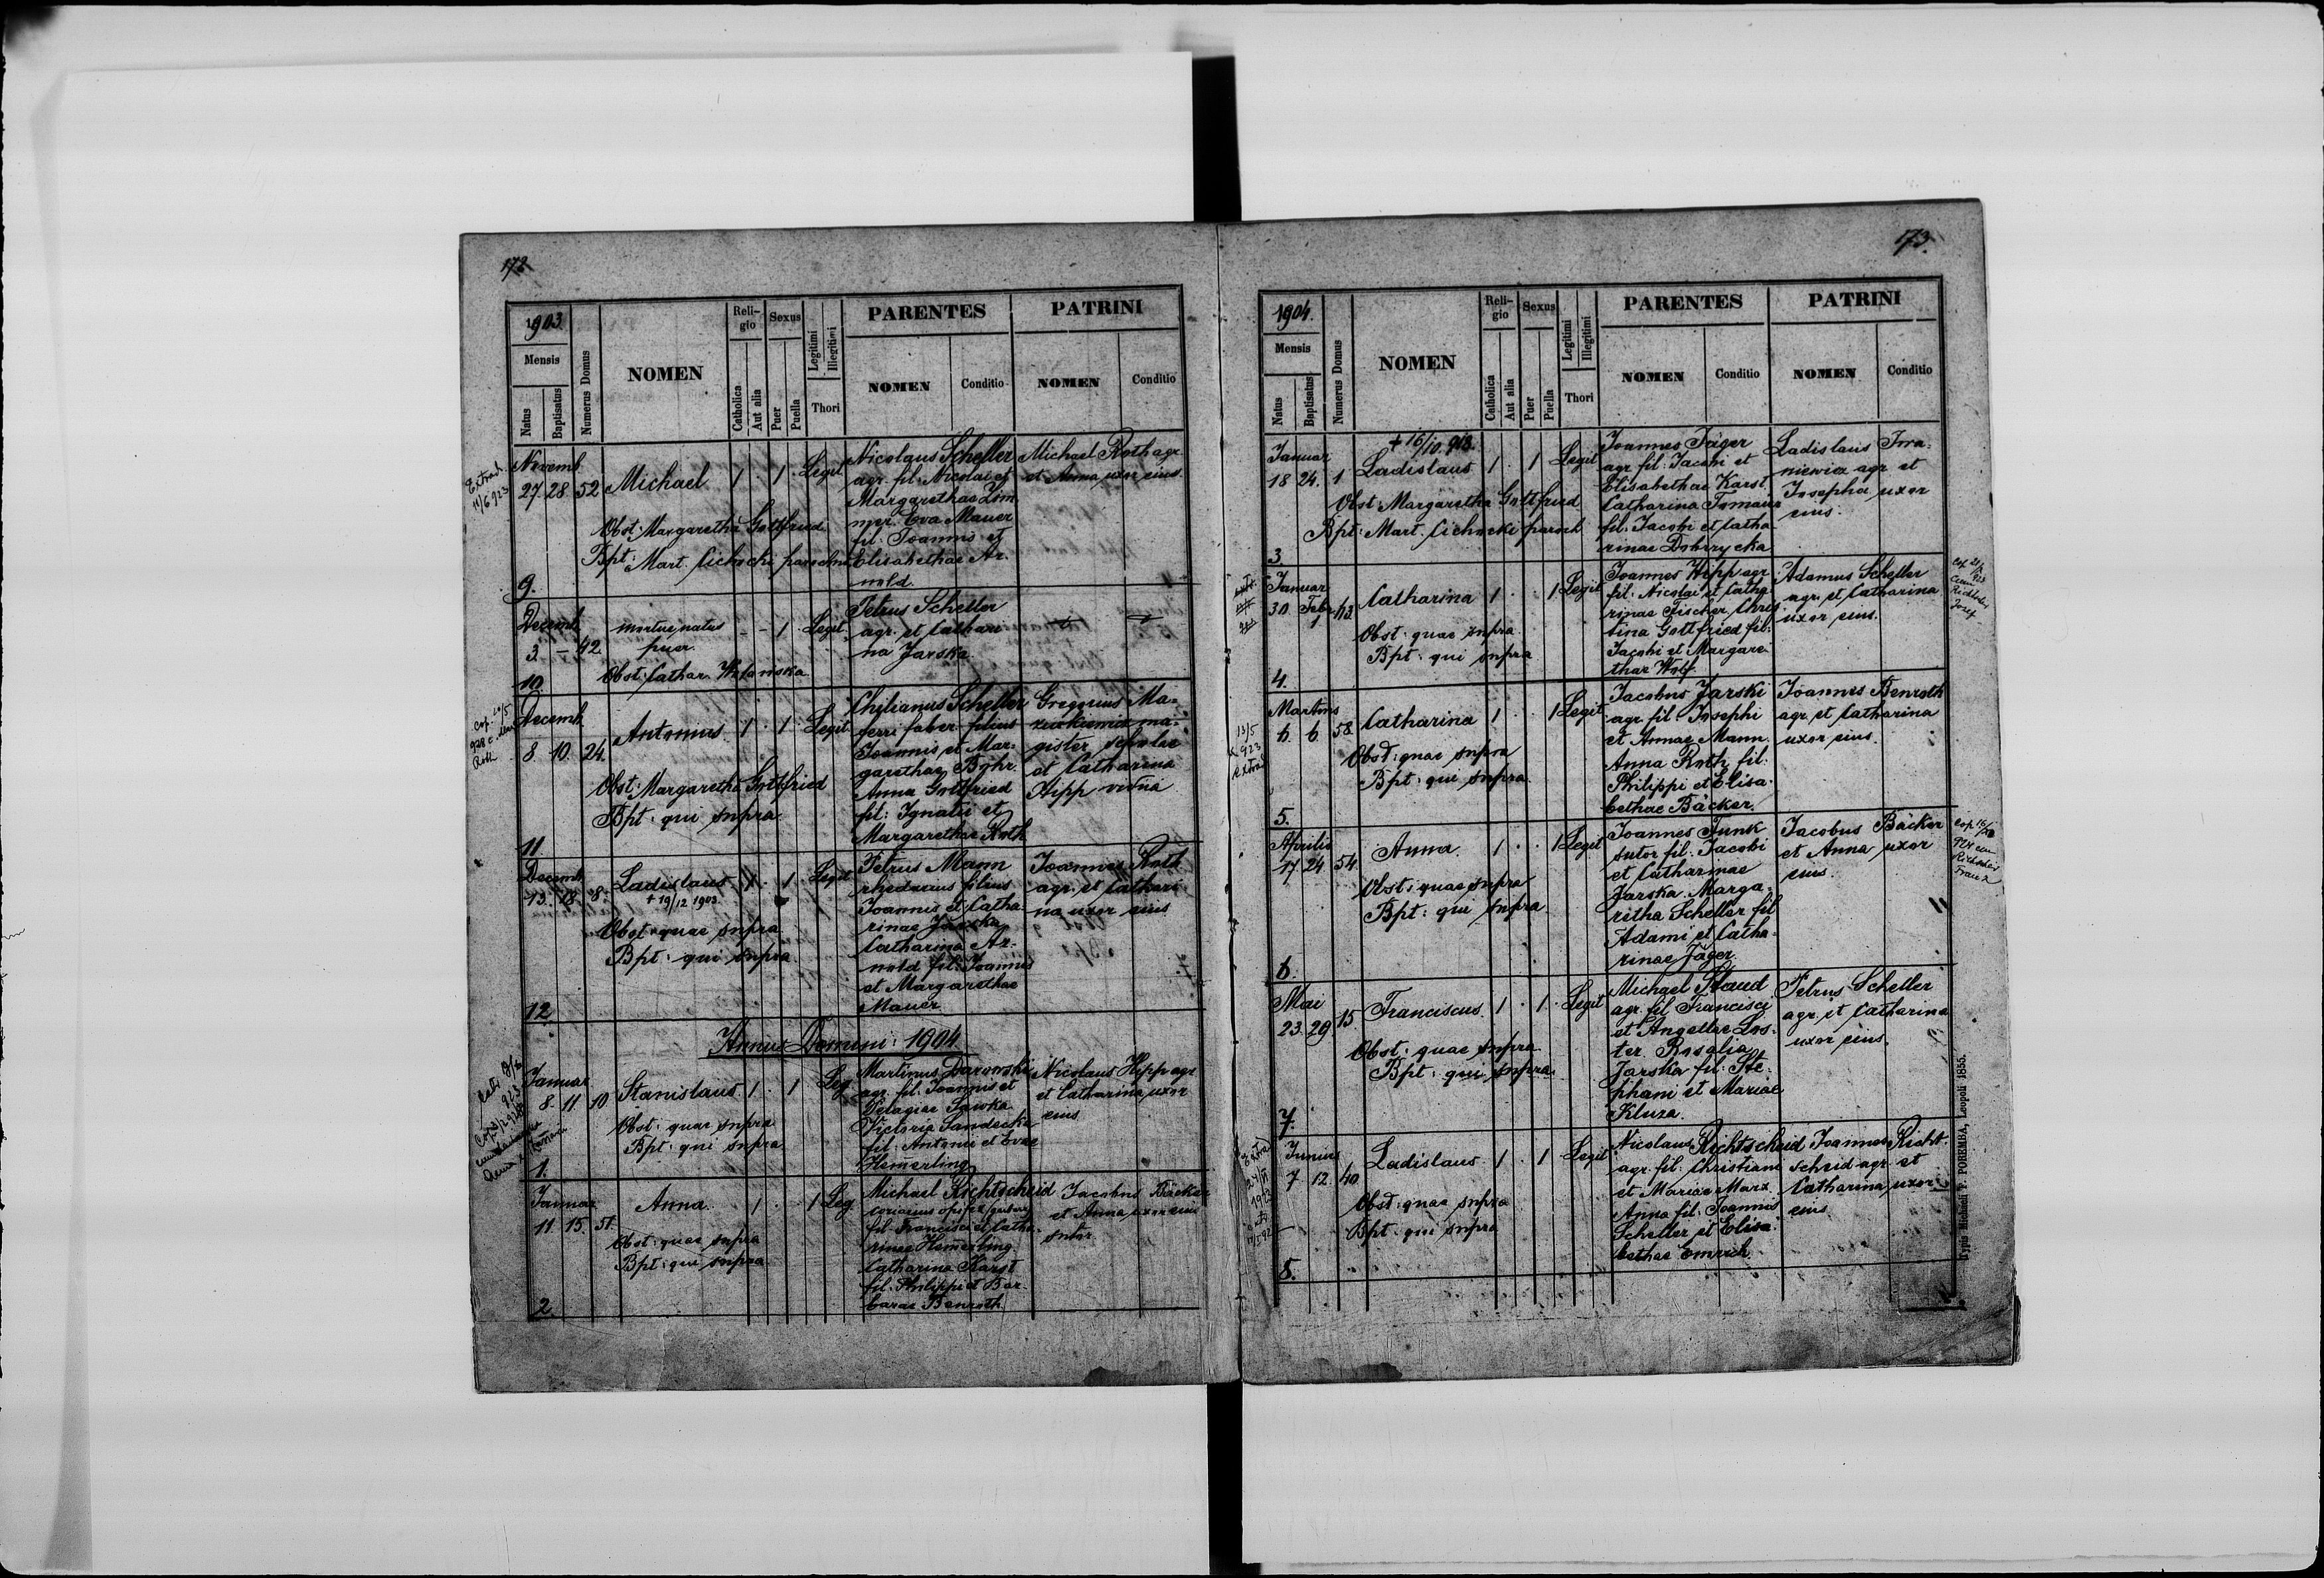 172
1903
Mensis
Natus
Baptisatus
Numerus Domus
NOMEN
Religio
Catholica
Aut alia
Sexus
Puer
Puella
Legitimi
Illegitimi
Thori
PARENTES
NOMEN
Conditio
PATRINI
NOMEN
Conditio
Extrad.
11/6 923
Novemb.
27. 28. 52 Michael 1 . 1 . Legit.
Obst: Margaretha Gottfried
Bpt: Mart. Cichocki parochus
9.
Nicolaus Scheller
agr. fil. Nicolai et
Margarethae Zim
mer. Eva Mauer
fil: Joannis et
Elisabethae Ar-
nold.
Michael Roth agr.
et Anna uxor eius.
Decemb.
3. — 42. mortue natus
puer. - - 1 Legit.
Obst: Cathar.
10.
Petrus Scheller
agr. et Cathari
na Jarska
Cop.
928 c.
Roth
Decemb.
8 10. 24. Antonius 1 . 1 . Legit.
Obst: Margaretha Gottfried
Bpt: qui supra
11
Chilianus Scheller
ferri faber filius
Joannis et Mar-
garethae
Anna Gottfried
fil: Ignatii et
Margarethae Roth
Gregorius Ma-
ma-
gister scholae
et Catharina
Hipp vidua
Decemb.
13. 18. 8. Ladislaus 1 . 1 . Legit.
+ 19/12 1903
Obst: quae supra
Bpt: qui supra
12.
Petrus Mann
rhedarius filius
Joannis et Catha-
rinae Jarska
Catharina Ar-
nold fil: Joannis
et Margarethae
Mauer
Joannes Roth
agr. et Cathari
na uxor eius
Annus Domini: 1904
Januar
8. 11 10 Stanislaus 1 . 1 Leg.
Obst: quae supra
Bpt: qui supra
1.
Martinus Darowski
agr. fil. Joannis et
Pelagiae Sawka
Victoria Sandecka
fil: Antonii et Evae
Hemerling
Nicolaus Hipp agr
et Catharina uxor
eius
Januar
11 15. 51. Anna 1 . 1 Leg.
Obst: quae supra
Bpt: qui supra
2.
Michael Richtscheid
coriarius opifex
fil. Francisci et Catha-
rinae Hemerling
Catharina Karst
fil. Philippi et Bar-
barae Benroth.
Jacobus Bäcker
et Anna uxor eius
sutor
173.
1904.
Mensis
Natus
Baptisatus
Numerus Domus
NOMEN
Religio
Catholica
Aut alia
Sexus
Puer
Puella
Legitimi
Illegitimi
Thori
PARENTES
NOMEN
Conditio
PATRINI
NOMEN
Conditio
+ 16/10. 918.
Januar
18 24. 1 Ladislaus 1 . 1 Legit
Obst: Margaretha Gottfried
Bpt: Mart. Cichocki paroch
3
Joannes Jäger
agr. fil: Jacobi et
Elisabethae Karst.
Catharina
fil: Jacobi et Catha
rinae Dobrzycka
Ladislaus Iwa-
niewicz agr. et
Josepha uxor
eius.
Januar
30. Febr. 43. Catharina 1 . . 1 Legit
1
Obst: quae supra
Bpt: qui supra
4.
Joannes Hipp agr
fil: Nicolai et Catha
rinae Fischer, Chris
tina Gottfried fil:
Jacobi et Margare-
thae Wolf
Adamus Scheller
agr. et Catharina
uxor eius.
Martius
6. 6. 58. Catharina 1 . . 1 Legit
Obst: quae supra
Bpt: qui supra
5.
13/5
923
extrad
Jacobus Jarski
agr. fil: Josephi
et Annae Mann.
Anna Roth fil:
Philippi et Elisa-
bethae Bäcker.
Joannes Benroth
agr. et Catharina
uxor eius.
Aprilis
17. 24 54 Anna. 1 . . 1 Legit
Obst: quae supra
Bpt: qui supra
6.
Joannes Junk
sutor fil: Jacobi
et Catharinae
Jarska. Marga-
ritha Scheller fil
Adami et Catha-
rinae Jäger.
Jacobus Bäcker
et Anna uxor
eius.
Mai
23. 29. 15 Franciscus 1 . 1 . Legit
Obst: quae supra
Bpt: qui supra.
7.
Michael Staud
agr. fil Francisci
et Angellae Los-
ter. Rosalia
Jarska fil: Ste-
phani et Mariae
Kluza.
Petrus Scheller
agr. et Catharina
uxor eius.
Junius
7 12. 40 Ladislaus 1 . 1 Legit
Obst: quae supra
Bpt: qui supra
8.
Nicolaus Richtscheid
agr. fil: Christiani
et Mariae Marx.
Anna fil: Joannis
Scheller et Elisa-
bethae Emrich.
Joannes Richt-
scheid agr. et
Catharina uxor
eius
Typis Michaeli F. POREMBA, Leopoli 1855.